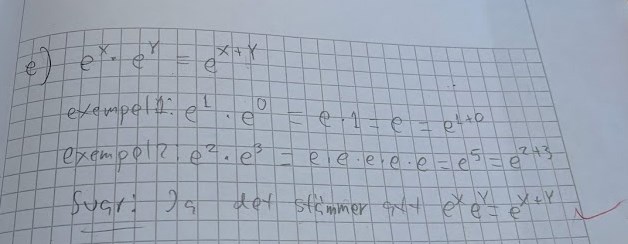 e) e^x · e^y = e^{x+y}
exempel 1: e^1 · e^0 = e · 1 = e = e^{1+0}
exempel 2: e^2 · e^3 = e·e·e·e·e = e^5 = e^{2+3}
Svar: Ja det stämmer att e^x e^y = e^{x+y}